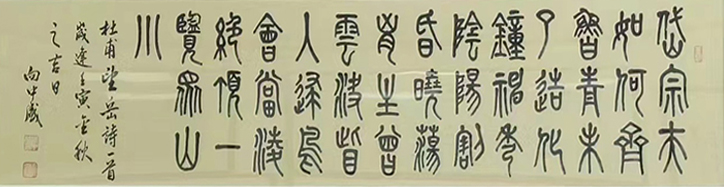 岱宗夫
如何齊
魯青未
了造化
鐘神秀
陰陽割
昏曉蕩
胷生曾
雲決眥
入歸鳥
會當凌
絕頂一
覽眾山
小
杜甫望岳詩一首
歲逢壬寅金秋
之吉日
向中盛